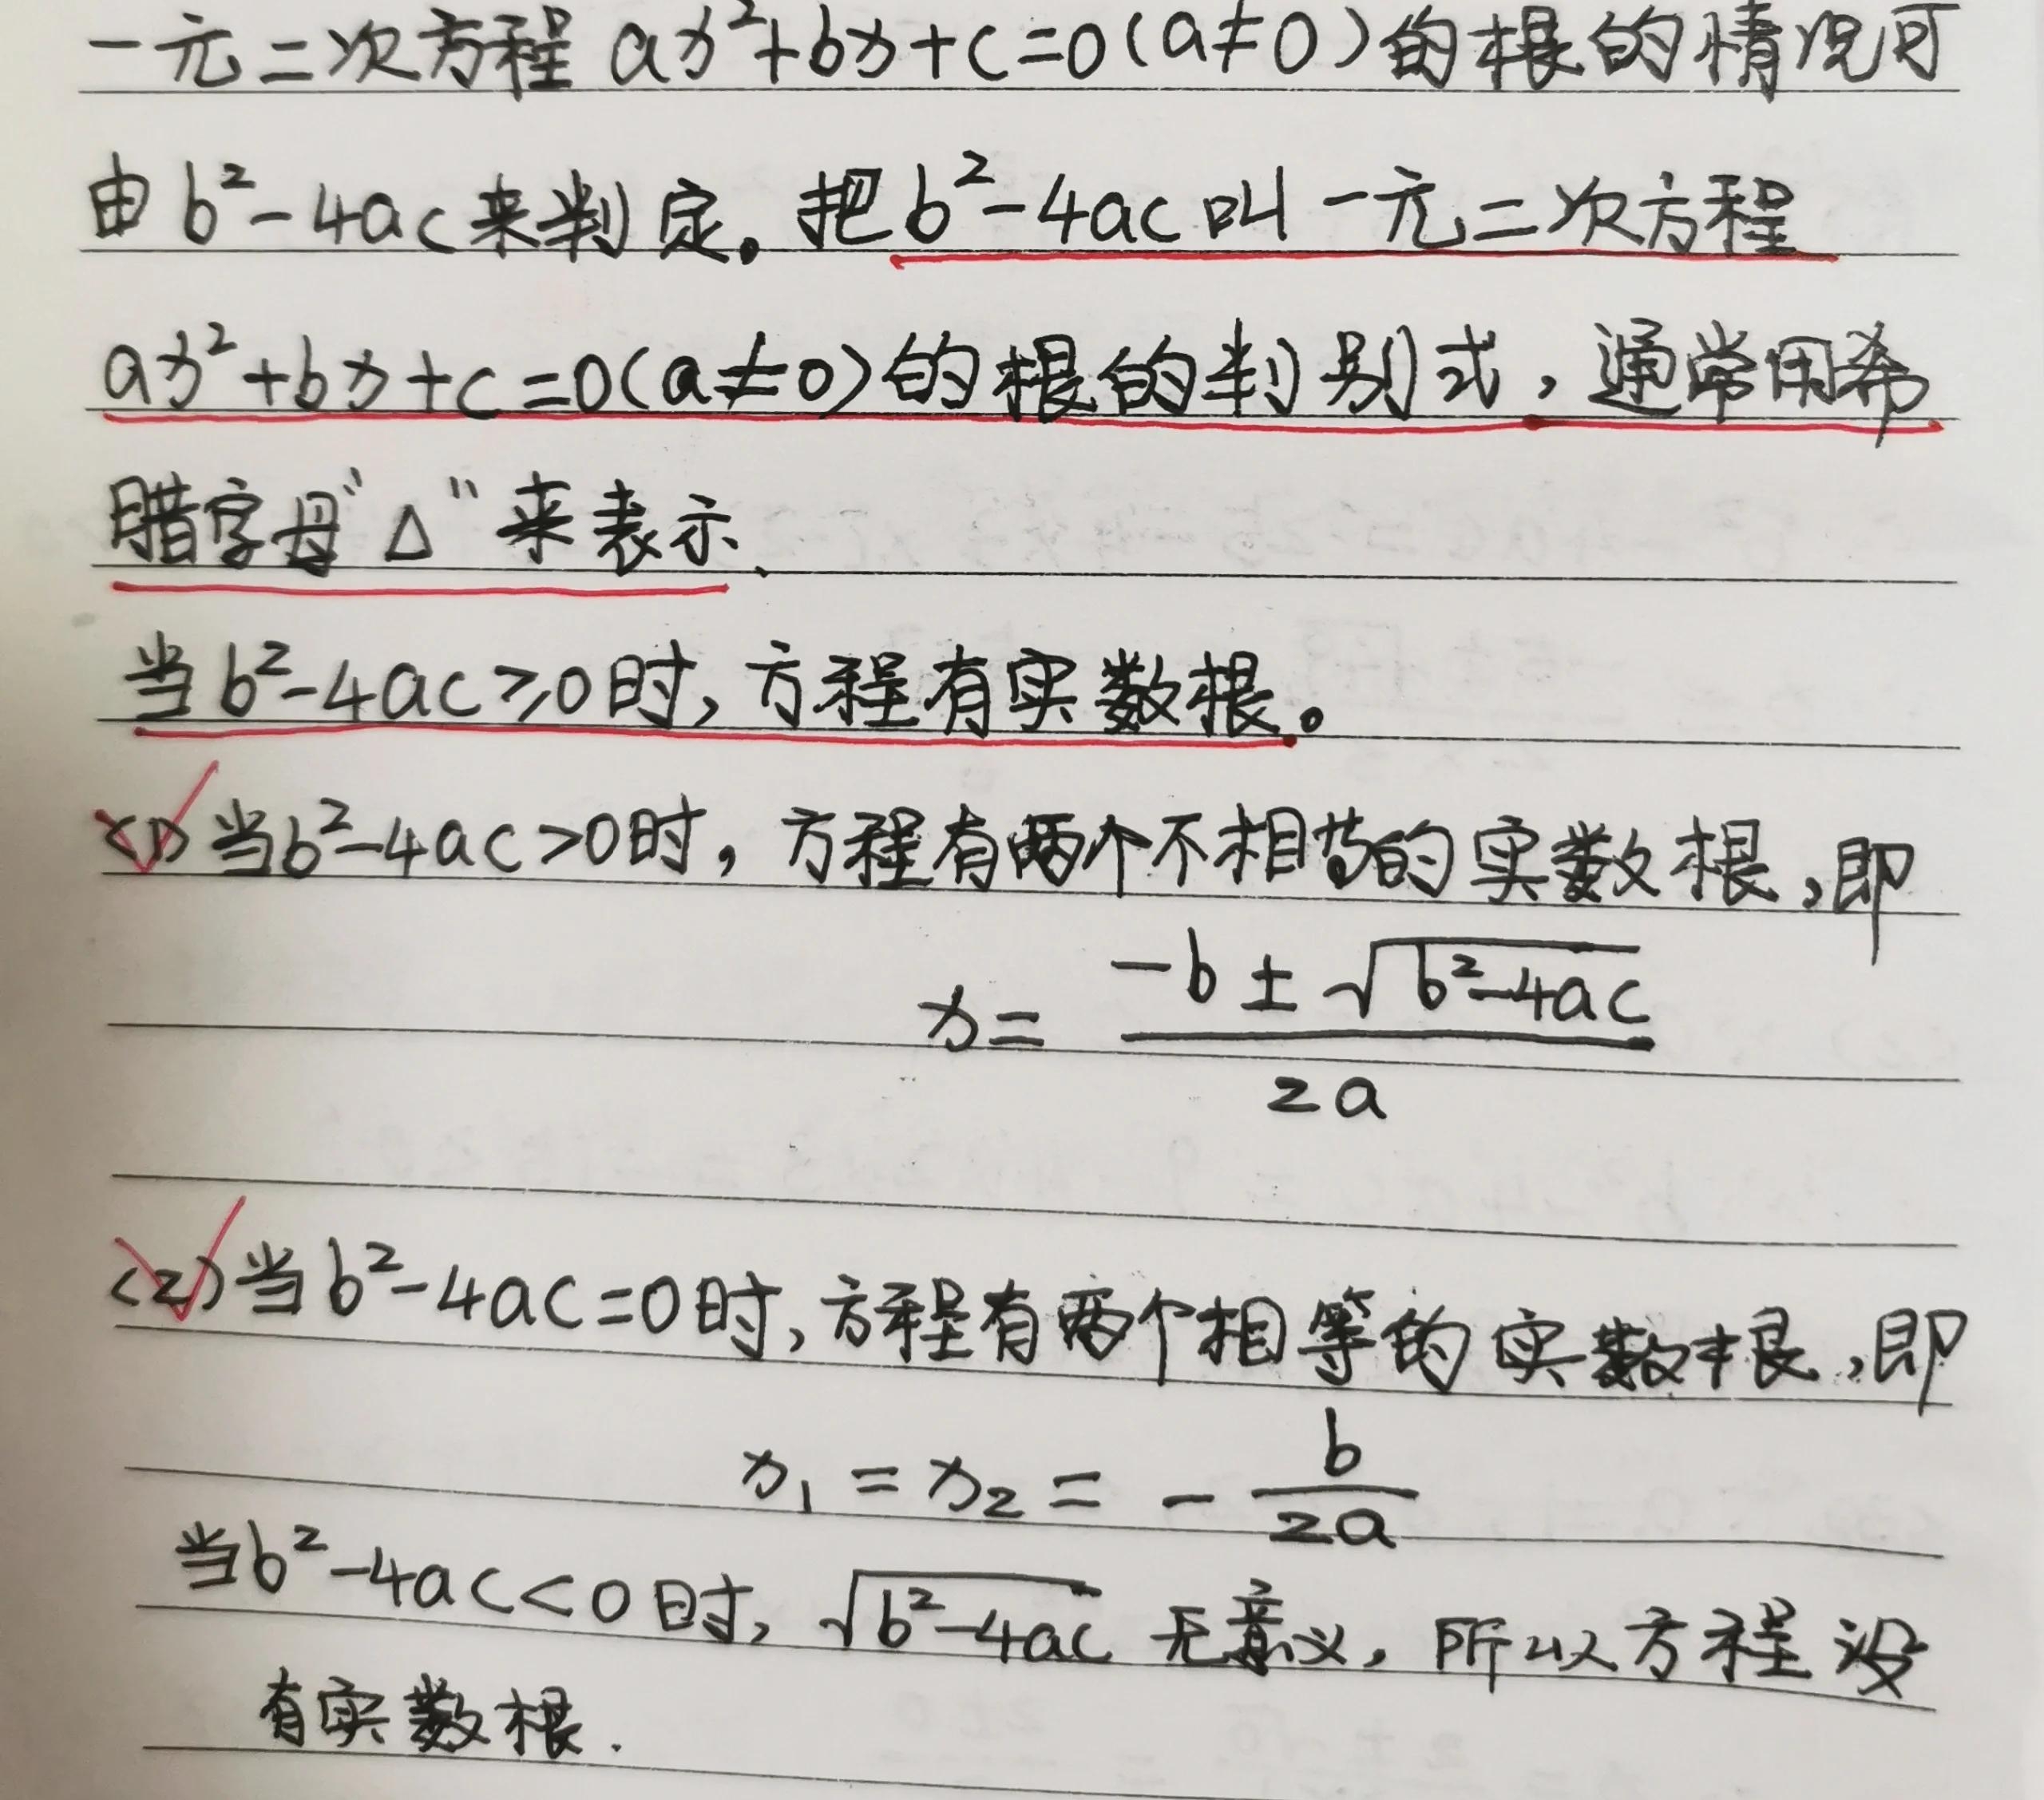 一元二次方程 ax²+bx+c=0(a≠0)的根的情况可
由b²-4ac来判定。把b²-4ac叫一元二次方程
ax²+bx+c=0(a≠0)的根的判别式，通常用希
腊字母“Δ”来表示.
当b²-4ac≥0时，方程有实数根。
(1)当b²-4ac>0时，方程有两个不相等的实数根，即
x= (-b±√(b²-4ac))/(2a)
(2)当b²-4ac=0时，方程有两个相等的实数根，即
x₁=x₂=-b/(2a)
当b²-4ac<0时，√(b²-4ac) 无意义，所以方程没
有实数根.